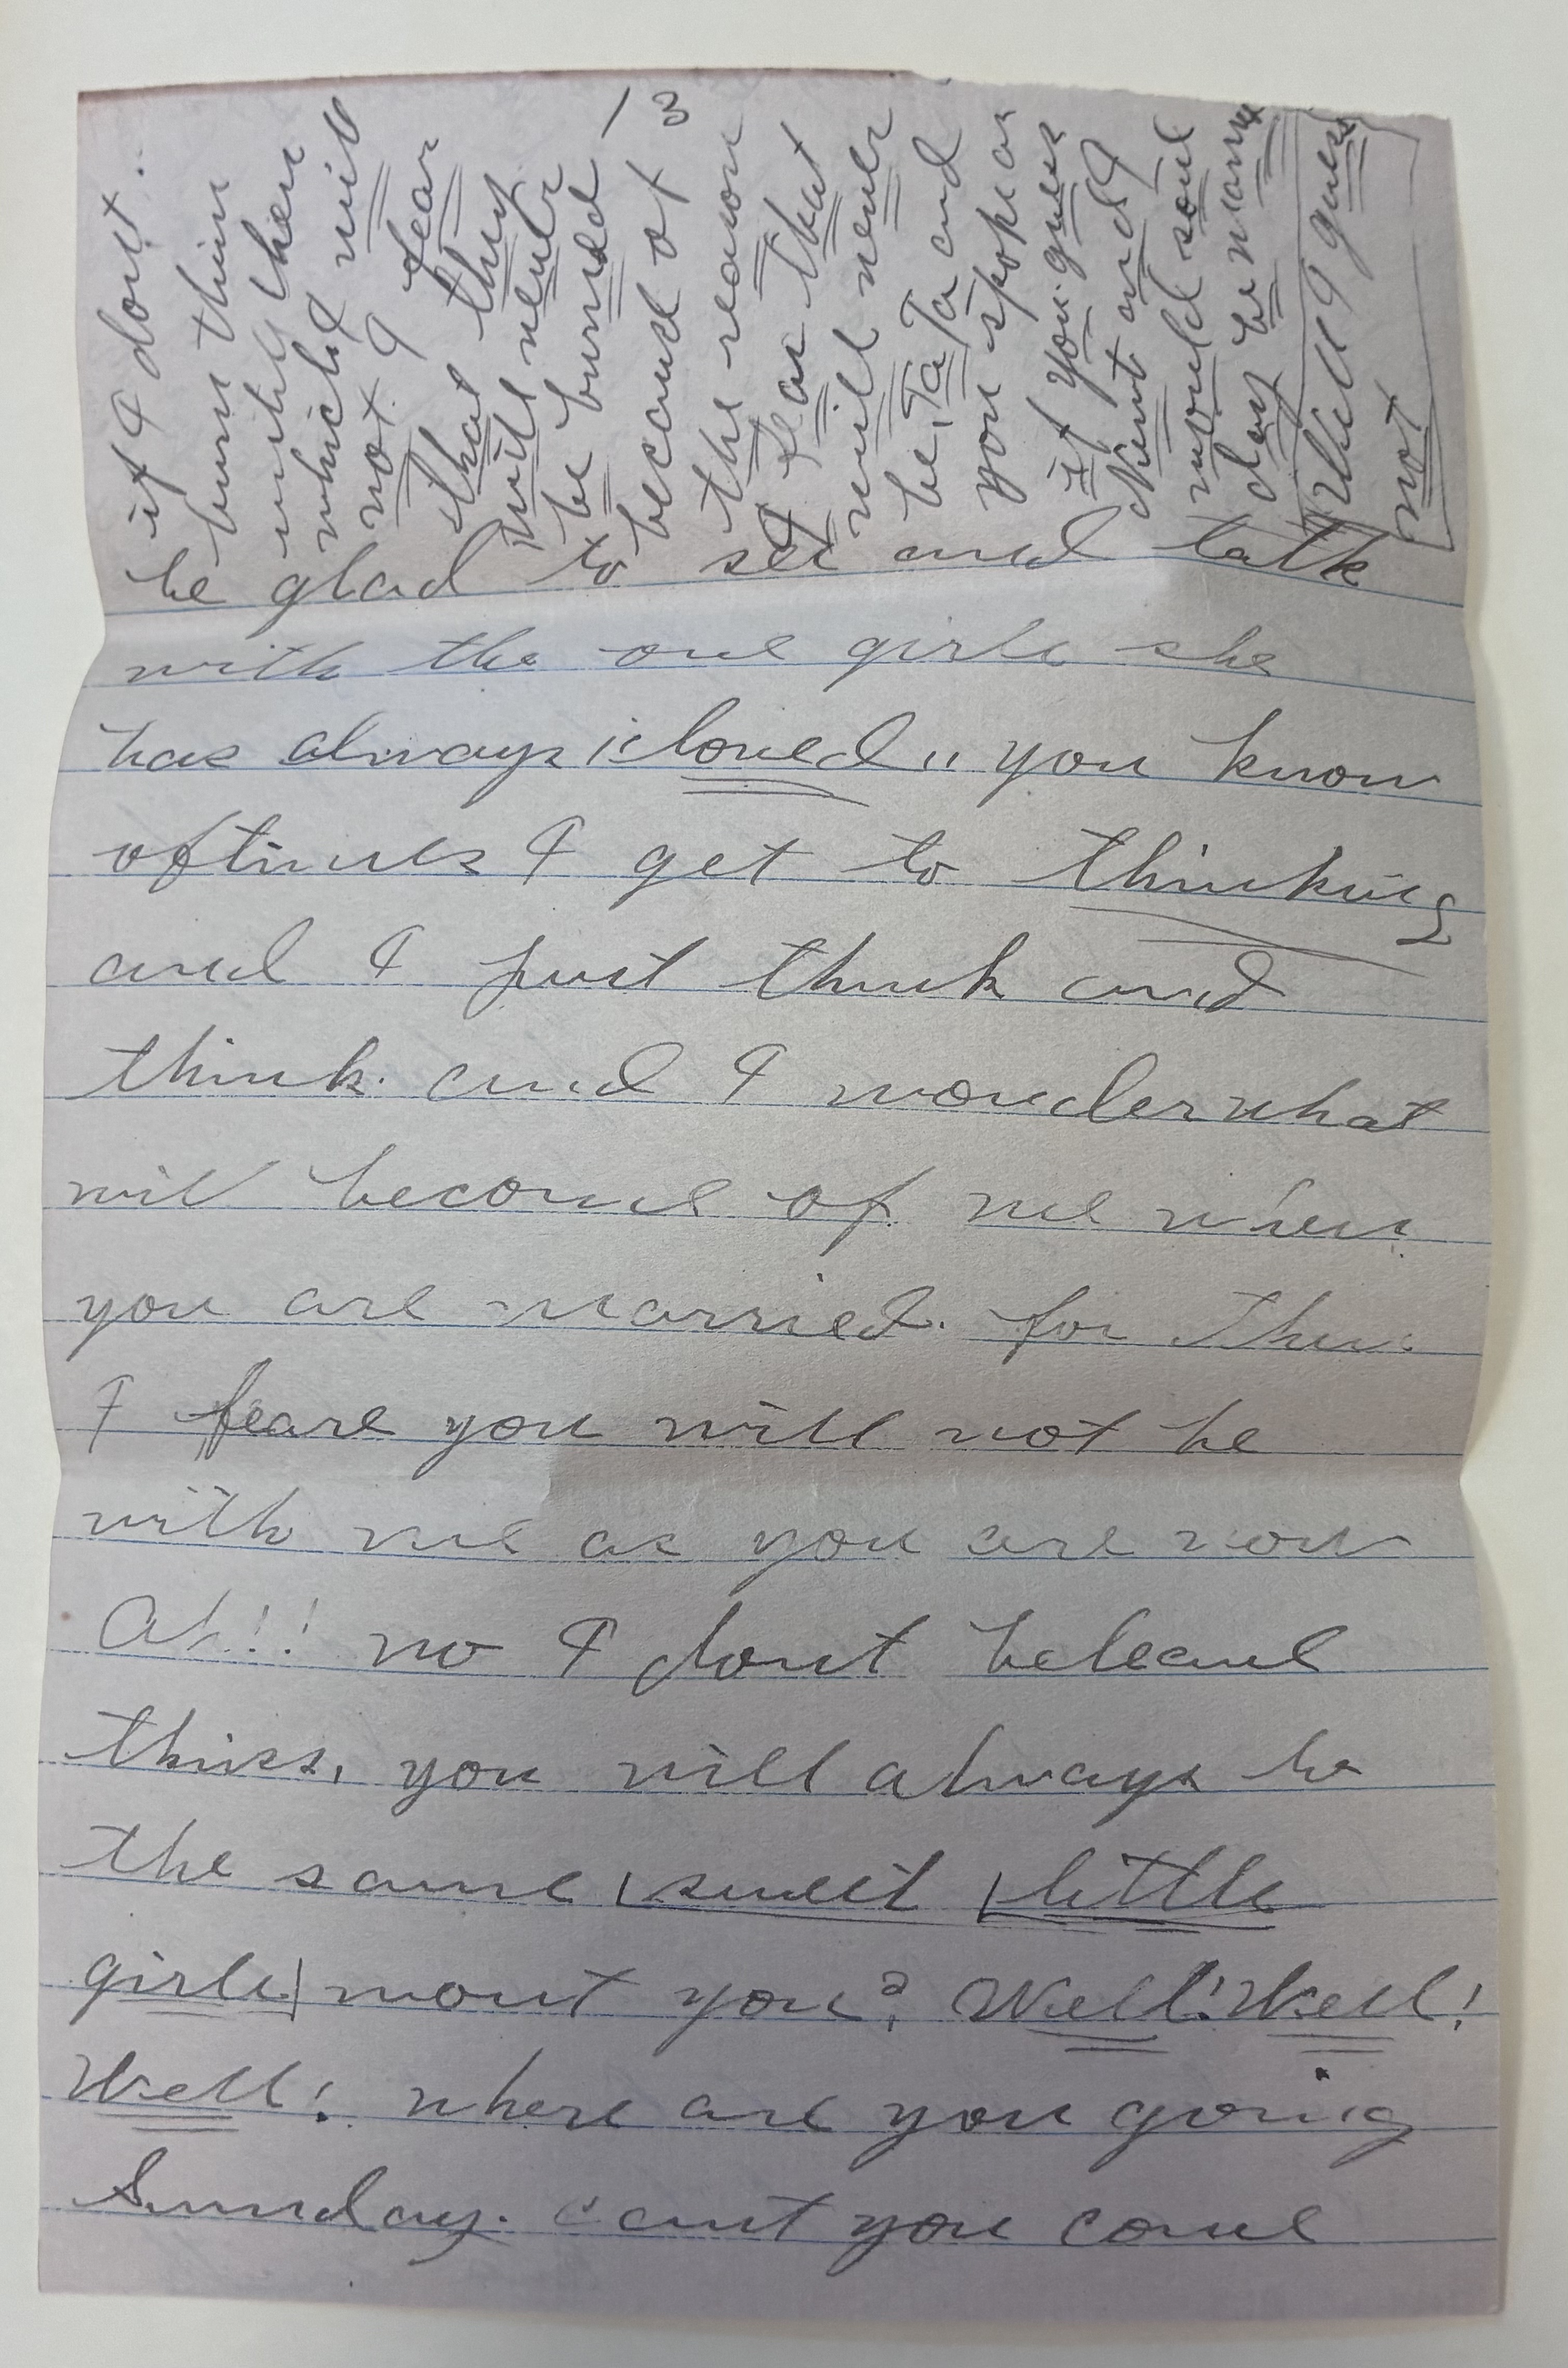 if I dont.
burn thim
until then
which I will
not. I fear
that they
will never
be burned
because of
the reason
I fear that
will never
be, Ta Ta and
you spoke on
if you guess
Nunt and I
would soul
day be name
Well I guess
not
13
be glad to see and talk
with the one girle she
has always "loved" you know
oftimes I get to thinking
and I just think and
think. and I wonder what
will become of me when
you are married. for then
I feare you will not be
with me as you are now
Ah!! no I dont beleave
thiss, you will always be
the same sweet little
girle wont you? Well! Well!
Well! where are you going
Sunday. cant you come